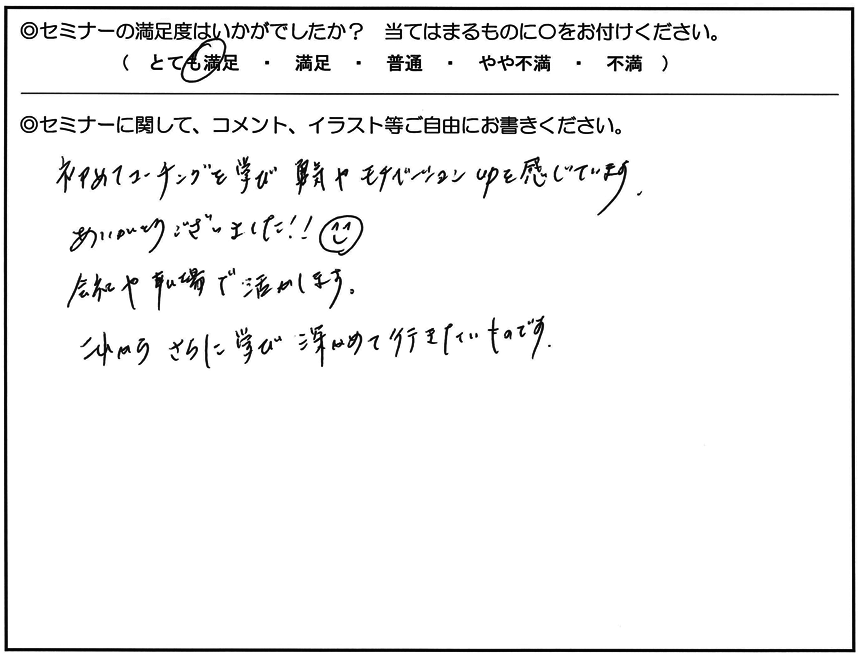 ◎セミナーの満足度はいかがでしたか？ 当てはまるものに〇をお付けください。
（ とても満足 ・ 満足 ・ 普通 ・ やや不満 ・ 不満 ）
◎セミナーに関して、コメント、イラスト等ご自由にお書きください。
初めてコーチングを学び 勇気や モチベーション upを感じています.
ありがとうございました!!
会社や 職場で活かします。
これから さらに学び 深めて行きたいものです.